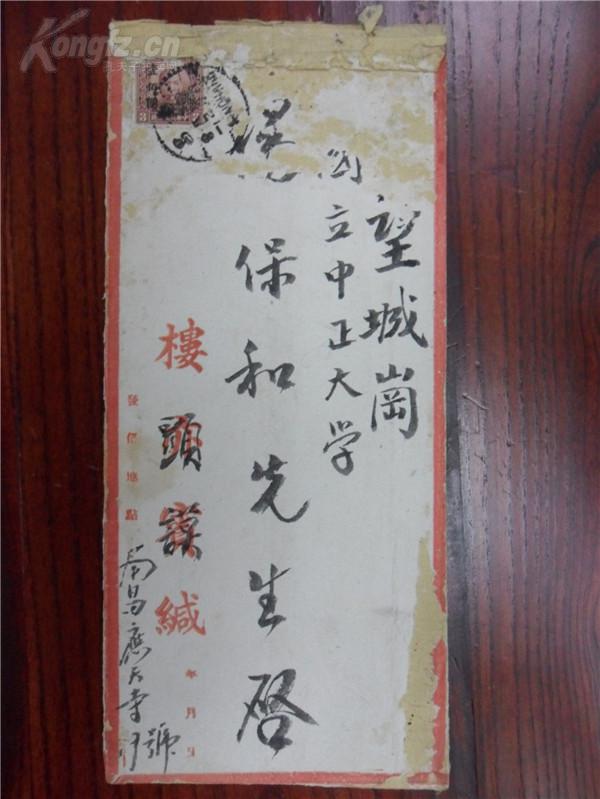 Kongfz.cn
望城崗
國立中正大学
保和先生啓
樓頭謨緘
發信地點
南昌應天寺
號
年月日